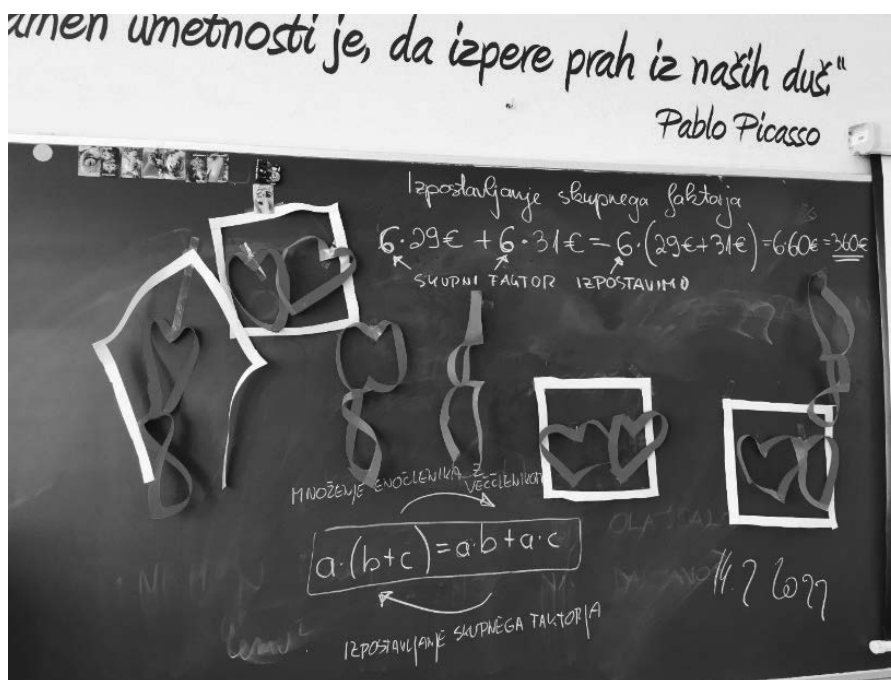 amen umetnosti je, da izpere prah iz naših duš."
Pablo Picasso
Izpostavljanje skupnega faktorja
6·29€ + 6·31€ = 6·(29€+31€) = 6·60€ = 360€
SKUPNI FAKTOR IZPOSTAVIMO
MNOŽENJE ENOČLENIKA Z
VEČČLENIKOM
a·(b+c) = a·b + a·c
IZPOSTAVLJANJE SKUPNEGA FAKTORJA